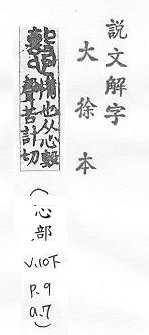 説文解字
大徐本
也从心毄
聲苦計切
(心部
V.10下
P.9
a.7)